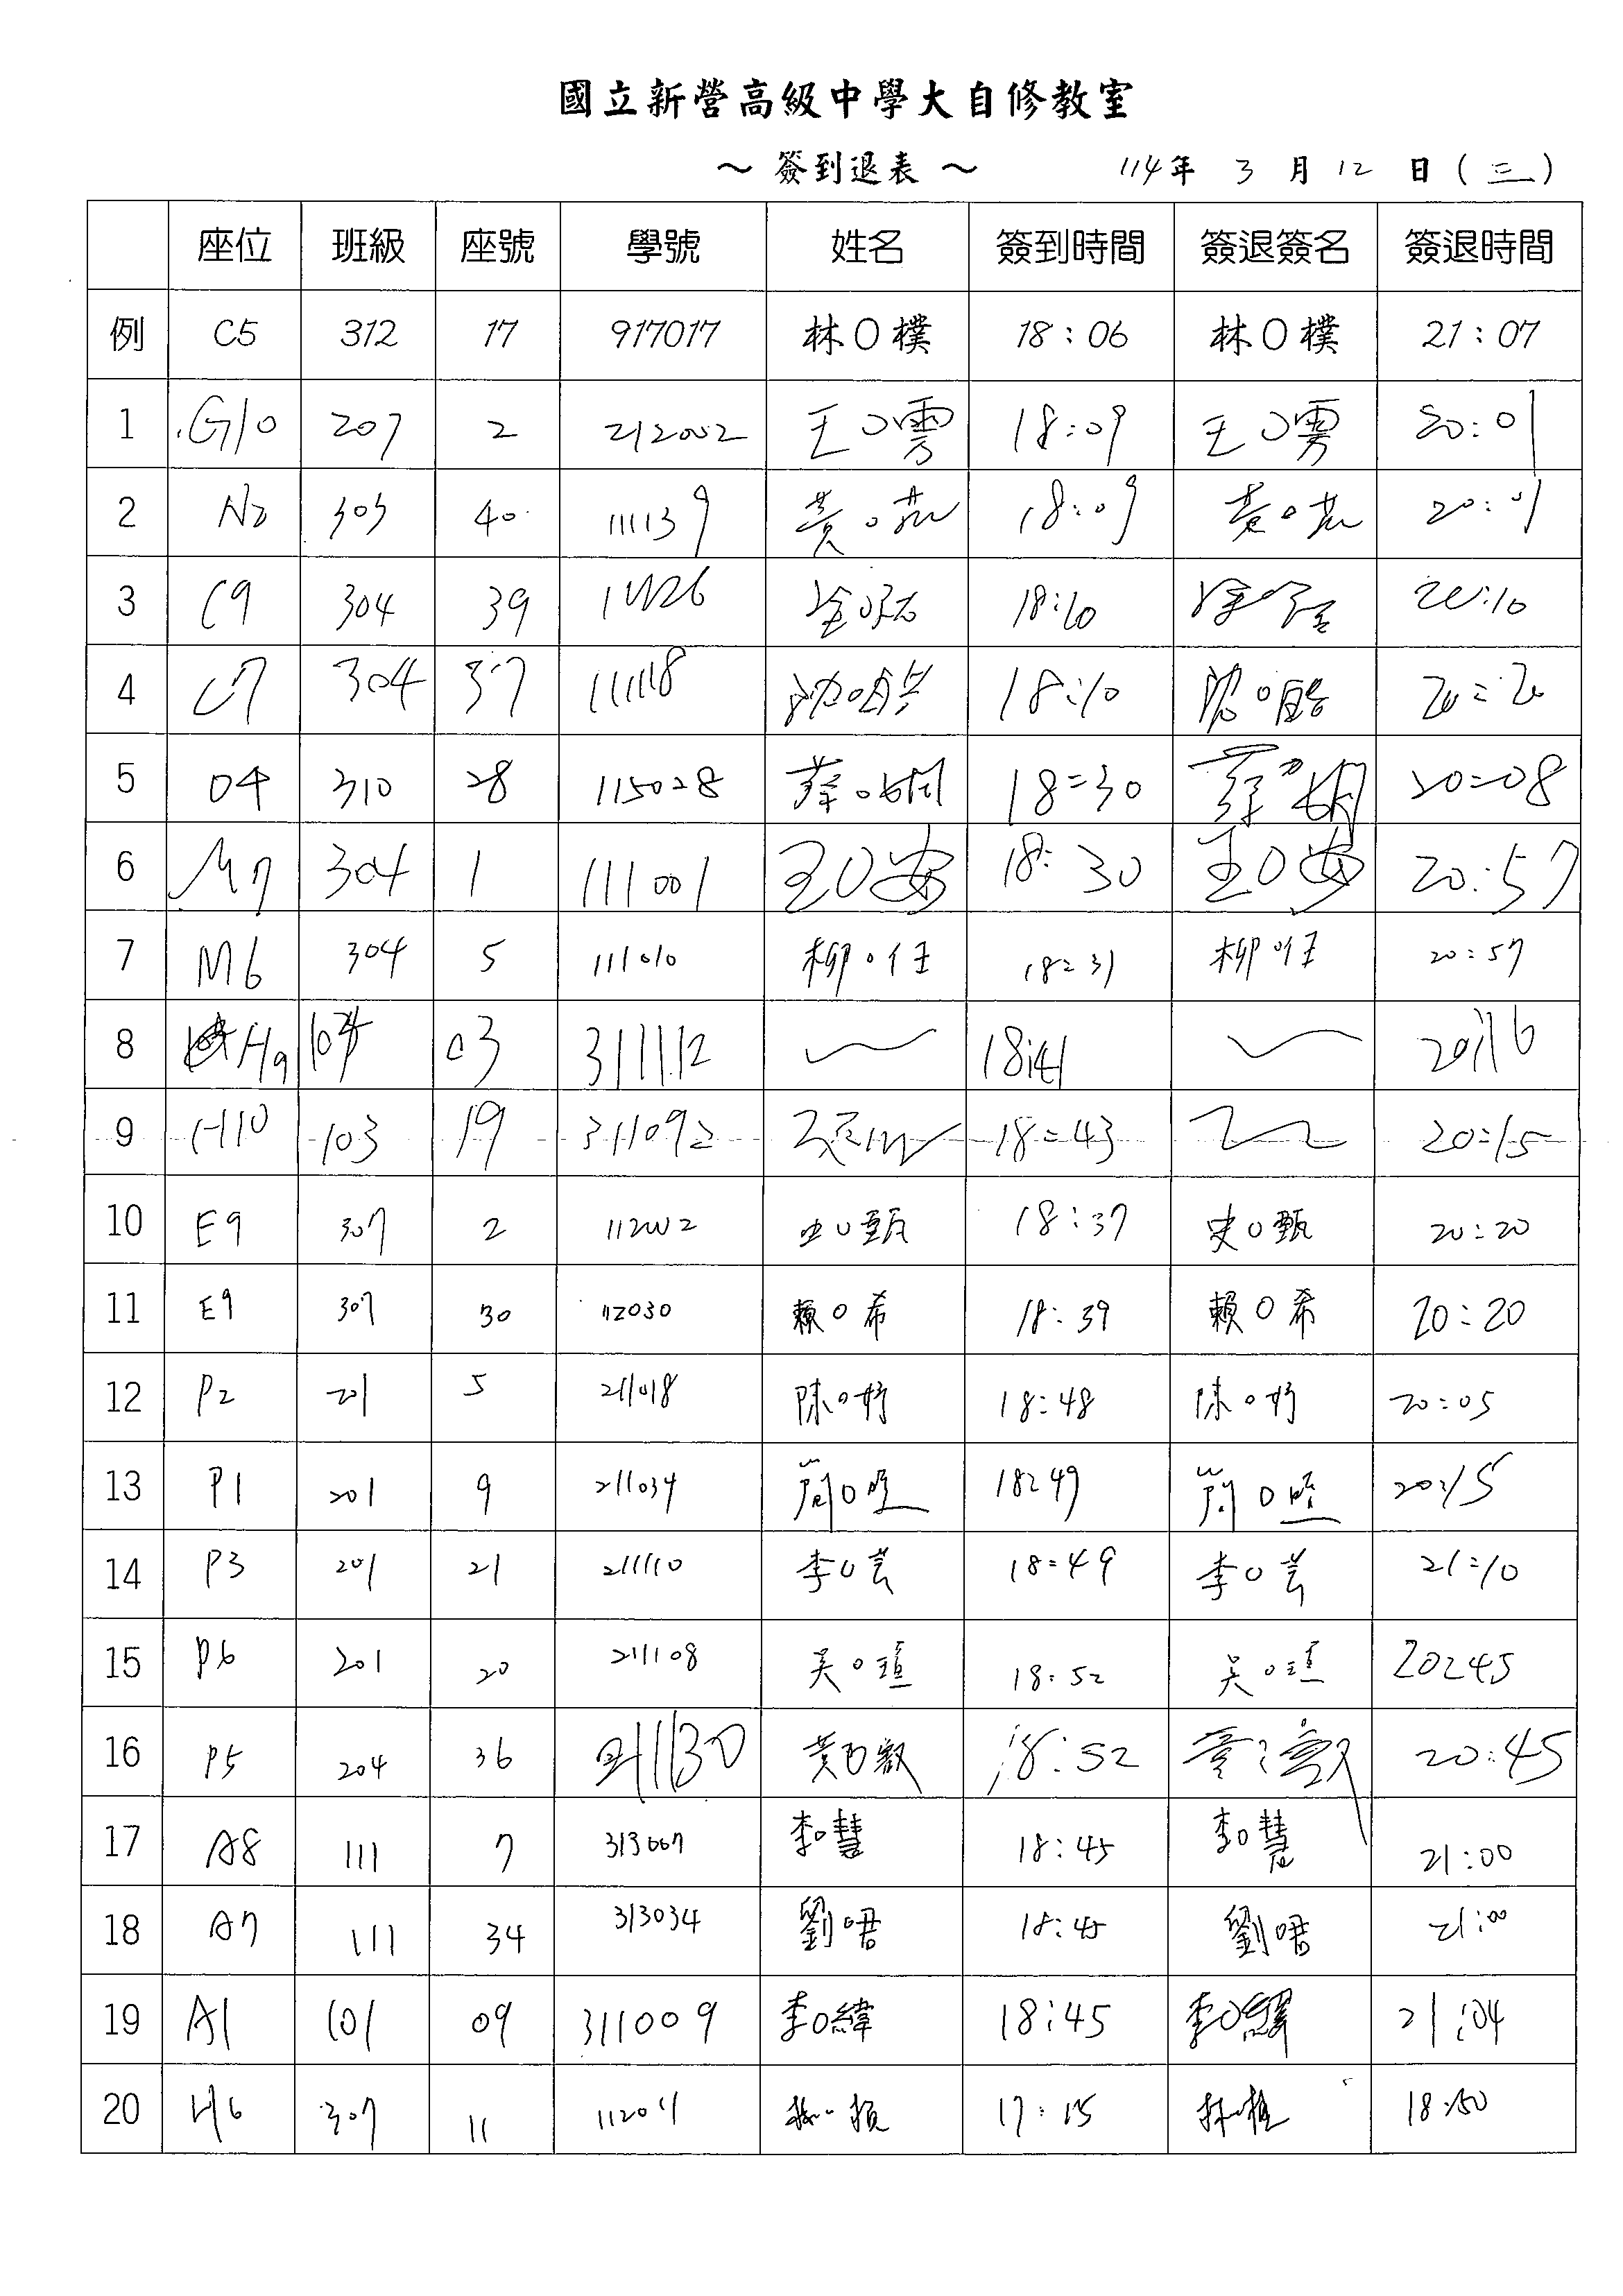 國立新營高級中學大自修教室
～ 簽到退表 ～ 114年 3 月 12 日 (三)
座位 班級 座號 學號 姓名 簽到時間 簽退簽名 簽退時間
例 C5 312 17 917017 林O樸 18:06 林O樸 21:07
1 G10 207 2 212002 王O雱 18:09 王O雱 20:01
2 N2 303 40 111139 黃O 18:09 黃O 20:01
3 C9 304 39 18:10 20:10
4 C7 304 37 111118 18:10 20:20
5 O4 310 28 115028 蔡O嫻 18:30 蔡O嫻 20:08
6 M7 304 1 111001 王O安 18:30 王O安 20:57
7 M6 304 5 111010 柳O任 18:31 柳O任 20:57
8 H9 03 311112 18:41 20:16
9 H10 103 19 311092 18:43 20:15
10 E9 307 2 112002 史O甄 18:37 史O甄 20:20
11 E9 307 30 112030 賴O希 18:39 賴O希 20:20
12 P2 201 5 211018 陳O妤 18:48 陳O妤 20:05
13 P1 201 9 211034 簡O 18:49 簡O 20:15
14 P3 201 21 211110 李O芸 18:49 李O芸 21:10
15 P6 201 20 211108 吳O瑄 18:52 吳O瑄 20:45
16 P5 204 36 211130 黃O 18:52 20:45
17 A8 111 7 313007 李O慧 18:45 李O慧 21:00
18 A7 111 34 313034 劉O晤 18:45 劉O晤 21:00
19 A1 101 09 311009 李O緯 18:45 李O緯 21:04
20 H6 307 11 112011 17:15 18:50